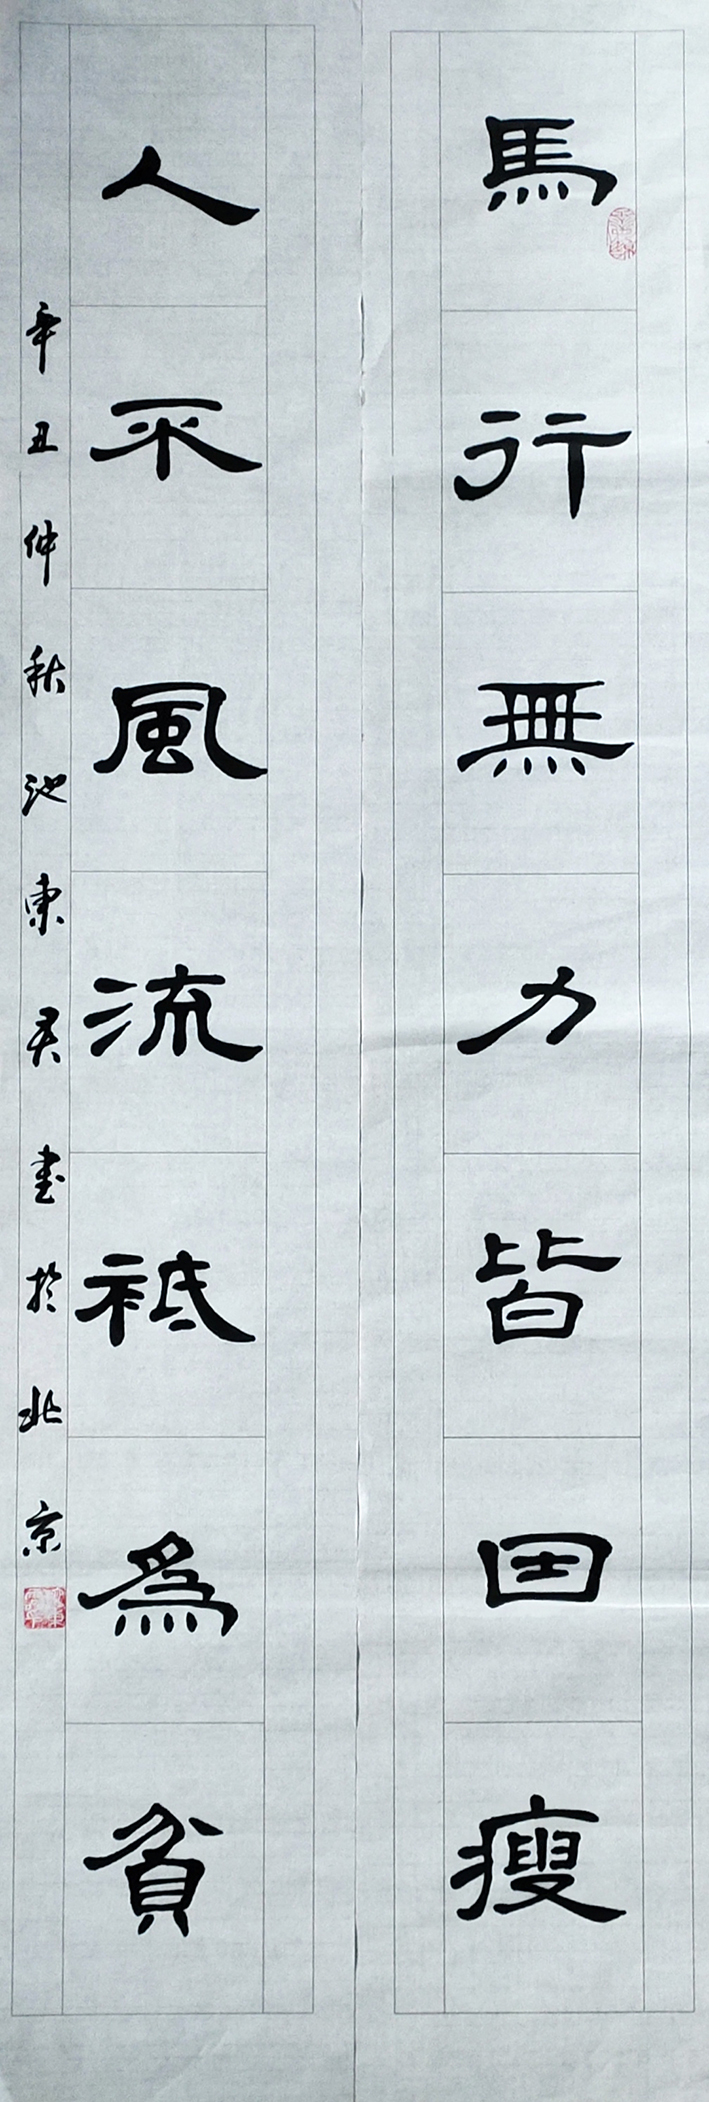 馬行無力皆因瘦
人不風流祗爲貧
辛丑仲秋池東君書於北京